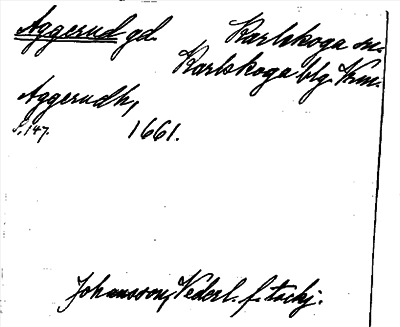 Aggerud gd. Karlskoga sn.
Karlskoga blg. Vrm.
Aggerudh,
S. 147. 1661.
Johansson, Vederl. f. tackj.